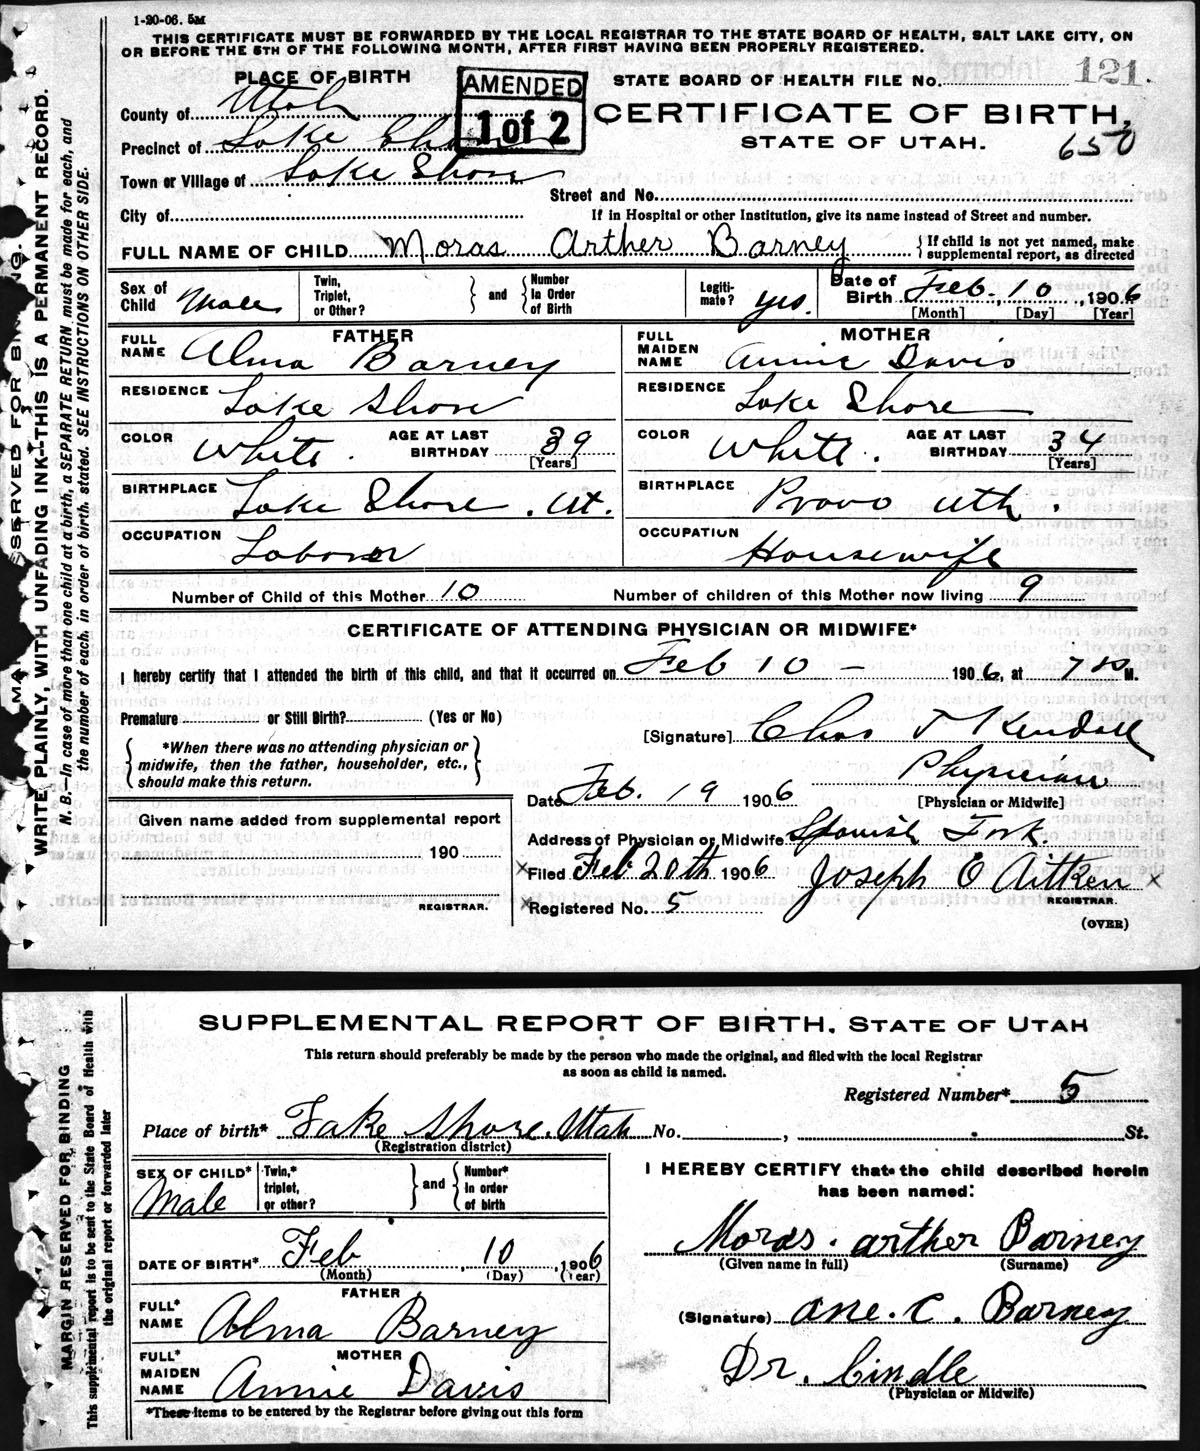 1-20-06. 5M
THIS CERTIFICATE MUST BE FORWARDED BY THE LOCAL REGISTRAR TO THE STATE BOARD OF HEALTH, SALT LAKE CITY, ON
OR BEFORE THE 5TH OF THE FOLLOWING MONTH, AFTER FIRST HAVING BEEN PROPERLY REGISTERED.
PLACE OF BIRTH
AMENDED
1 of 2
STATE BOARD OF HEALTH FILE No. 121.
County of Utah
CERTIFICATE OF BIRTH,
Precinct of Lake Shore
STATE OF UTAH.
650
Town or Village of Lake Shore
Street and No.
City of
If in Hospital or other Institution, give its name instead of Street and number.
FULL NAME OF CHILD Moras Arther Barney
{If child is not yet named, make
supplemental report, as directed
Sex of Child Male
Twin, Triplet, or Other?
and
Number In Order of Birth
Legiti-mate? yes.
Date of Birth Feb. 10, 1906
[Month] [Day] [Year]
FATHER
FULL NAME Alma Barney
RESIDENCE Lake Shore
COLOR White.
AGE AT LAST BIRTHDAY 39
[Years]
BIRTHPLACE Lake Shore. Ut.
OCCUPATION Laborer
MOTHER
FULL MAIDEN NAME Annie Davis
RESIDENCE Lake Shore
COLOR White.
AGE AT LAST BIRTHDAY 34
[Years]
BIRTHPLACE Provo Uth.
OCCUPATION Housewife
Number of Child of this Mother 10
Number of children of this Mother now living 9
CERTIFICATE OF ATTENDING PHYSICIAN OR MIDWIFE*
I hereby certify that I attended the birth of this child, and that it occurred on Feb 10 - 1906, at 7 M.
Premature or Still Birth? (Yes or No)
[Signature] Chas Kendall
{*When there was no attending physician or
midwife, then the father, householder, etc.,
should make this return.}
Physician
[Physician or Midwife]
Date Feb. 19 1906
Given name added from supplemental report
190
REGISTRAR.
Address of Physician or Midwife Spanish Fork.
×Filed Feb 20th 1906
Joseph O Aitken ×
REGISTRAR.
×Registered No. 5
(OVER)
WRITE PLAINLY, WITH UNFADING INK--THIS IS A PERMANENT RECORD.
N. B.—In case of more than one child at a birth, a SEPARATE RETURN must be made for each, and
the number of each, in order of birth, stated. SEE INSTRUCTIONS ON OTHER SIDE.
SUPPLEMENTAL REPORT OF BIRTH, STATE OF UTAH
This return should preferably be made by the person who made the original, and filed with the local Registrar
as soon as child is named.
Registered Number* 5
Place of birth* Lake Shore. Utah No. , St.
(Registration district)
SEX OF CHILD* Male
Twin,* triplet, or other?
and
Number* in order of birth
I HEREBY CERTIFY that the child described herein
has been named:
DATE OF BIRTH* Feb 10, 1906
(Month) (Day) (Year)
Moras. arther Barney
(Given name in full) (Surname)
FATHER
FULL* NAME Alma Barney
(Signature) ane. C. Barney
MOTHER
FULL* MAIDEN NAME Annie Davis
Dr.
(Physician or Midwife)
*These items to be entered by the Registrar before giving out this form
MARGIN RESERVED FOR BINDING
This supplemental report is to be sent to the State Board of Health with
the original report or forwarded later